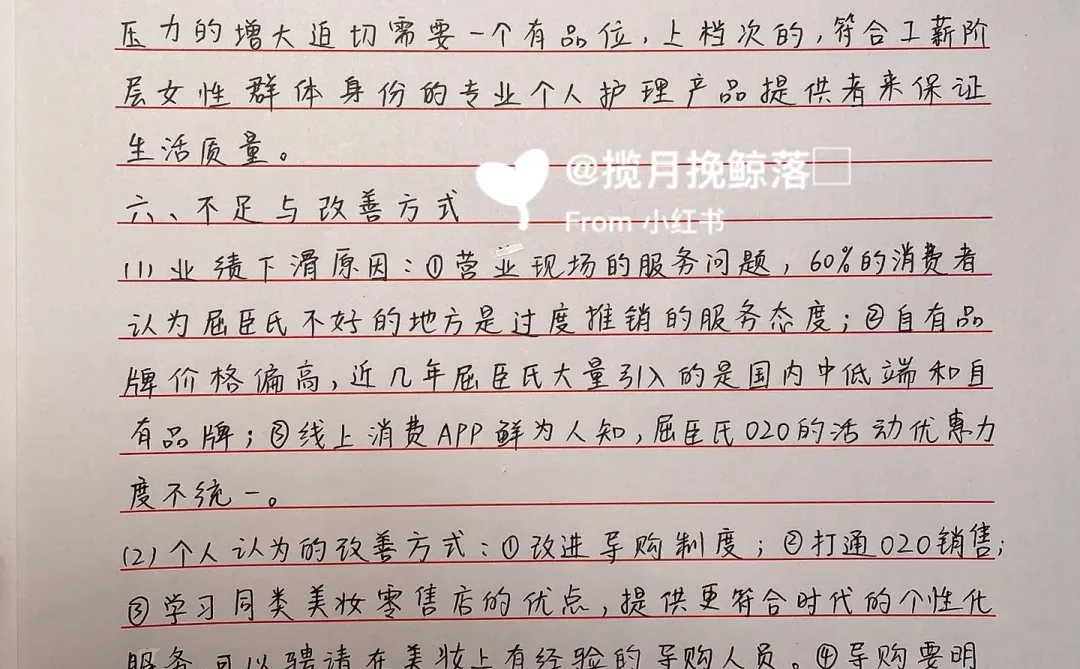 压力的增大迫切需要一个有品位,上档次的,符合工薪阶
层女性群体身份的专业个人护理产品提供者来保证
生活质量。
@揽月挽鲸落
From 小红书
六、不足与改善方式
(1)业绩下滑原因:①营业现场的服务问题,60%的消费者
认为屈臣氏不好的地方是过度推销的服务态度;②自有品
牌价格偏高,近几年屈臣氏大量引入的是国内中低端和自
有品牌;③线上消费APP鲜为人知,屈臣氏O2O的活动优惠力
度不统一。
(2)个人认为的改善方式:①改进导购制度;②打通O2O销售;
③学习同类美妆零售店的优点,提供更符合时代的个性化
服务,可以聘请在美妆上有经验的导购人员。④导购要明